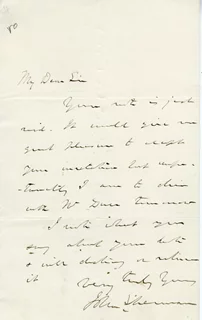 80
My Dear Sir
Your note is just
rec'd. It would give me
great pleasure to accept
your invitation but unfor-
-tunately I am to dine
with Mr tomorrow
I note what you
say about your
& will or
it
Very truly Yours
John Sherman